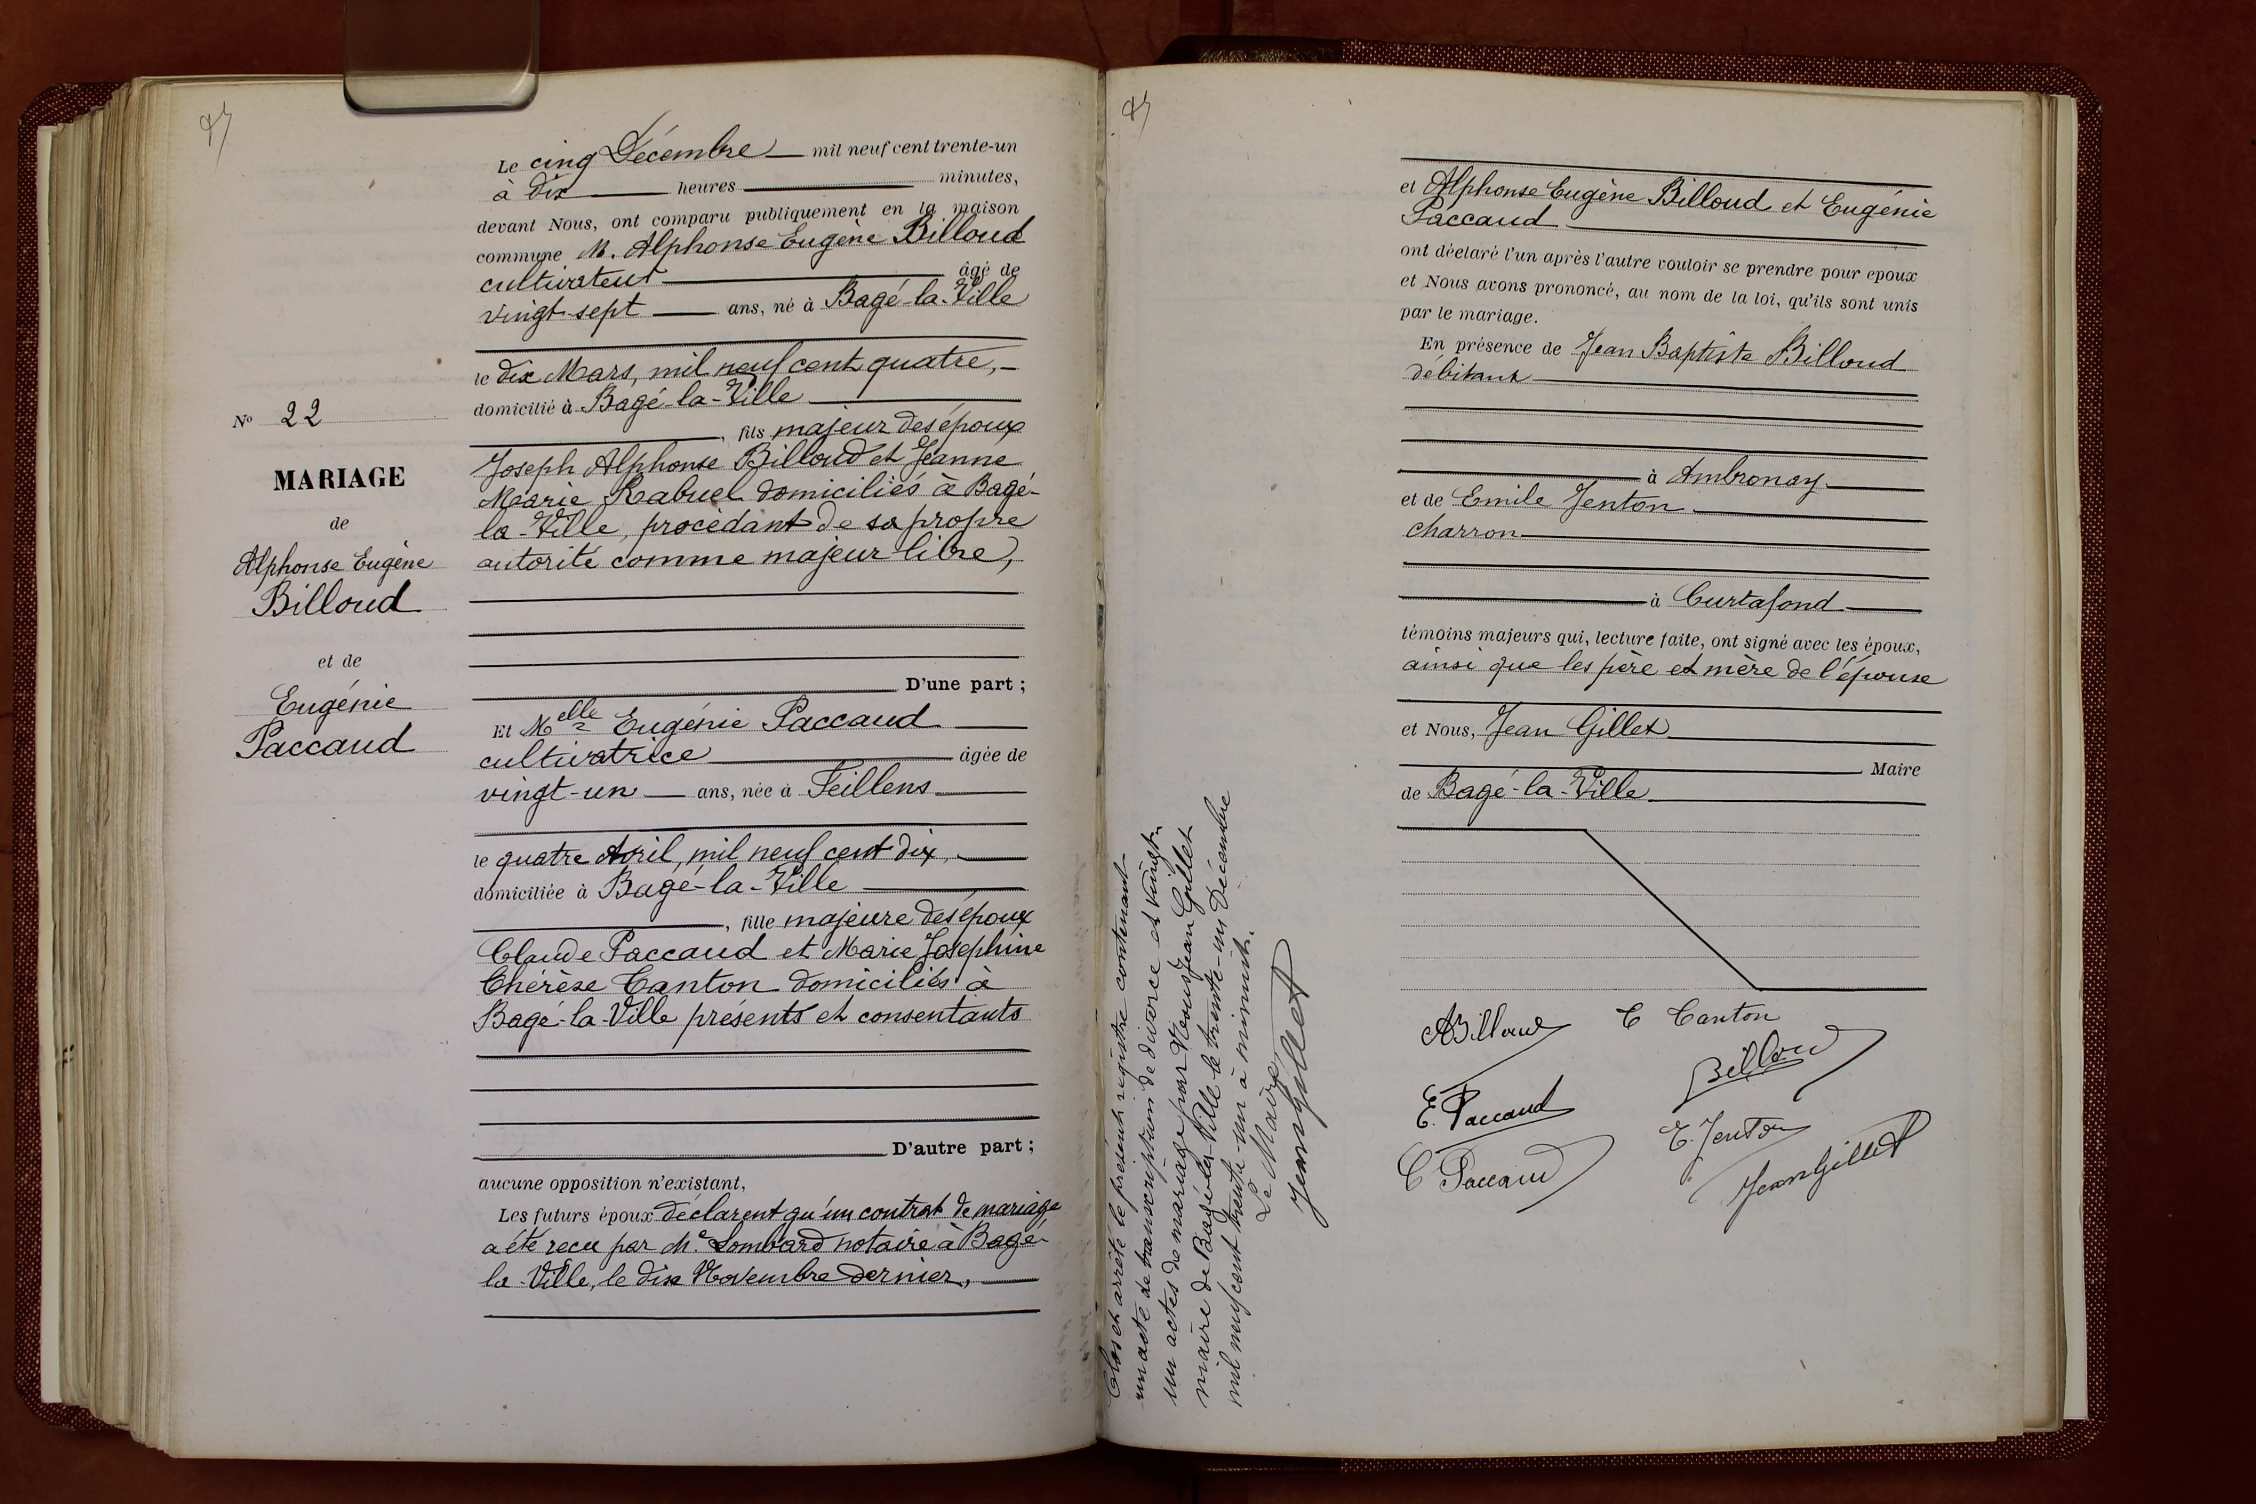 Le cinq Décembre mil neuf cent trente-un
à dix heures minutes,
devant Nous, ont comparu publiquement en la maison
commune M. Alphonse Eugène Billoud
cultivateur âgé de
vingt-sept ans, né à Bagé-la-Ville
le dix Mars, mil neuf cent quatre,
domicilié à Bagé-la-Ville
, fils majeur des époux
Joseph Alphonse Billoud et Jeanne
Marie Rabuel domiciliés à Bagé-
la-Ville, procédant de sa propre
autorité comme majeur libre,
D'une part ;
Nº 22
MARIAGE
de
Alphonse Eugène
Billoud
et de
Eugénie
Paccaud
Et Melle Eugénie Paccaud
cultivatrice âgée de
vingt-un ans, née à Feillens
le quatre Avril, mil neuf cent dix,
domiciliée à Bagé-la-Ville
, fille majeure des époux
Claude Paccaud et Marie Joséphine
Thérèse Canton domiciliés à
Bagé-la-Ville présents et consentants
D'autre part ;
aucune opposition n'existant,
Les futurs époux déclarent qu'un contrat de mariage
a été recu par Me Lombard notaire à Bagé-
la-Ville, le dix Novembre dernier,
et Alphonse Eugène Billoud et Eugénie
Paccaud
ont déclaré l'un après l'autre vouloir se prendre pour epoux
et Nous avons prononcé, au nom de la loi, qu'ils sont unis
par le mariage.
En présence de Jean Baptiste Billoud
débitant
à Ambronay
et de Emile Jenton
charron
à Curtafond
témoins majeurs qui, lecture faite, ont signé avec les époux,
ainsi que les père et mère de l'épouse
et Nous, Jean Gillet
Maire
de Bagé-la-Ville
ABilloud T Canton
Billoud
E. Paccaud
E. Jenton
C Paccaud
Jean Gillet
Clos et arrêté le présent registre contenant
un acte de transcription de divorce et vingt-
un actes de mariage par Nous Jean Gillet
maire de Bagé-la-Ville le trente-un Décembre
mil neuf cent trente-un à minuit.
Le Maire
Jean Gillet